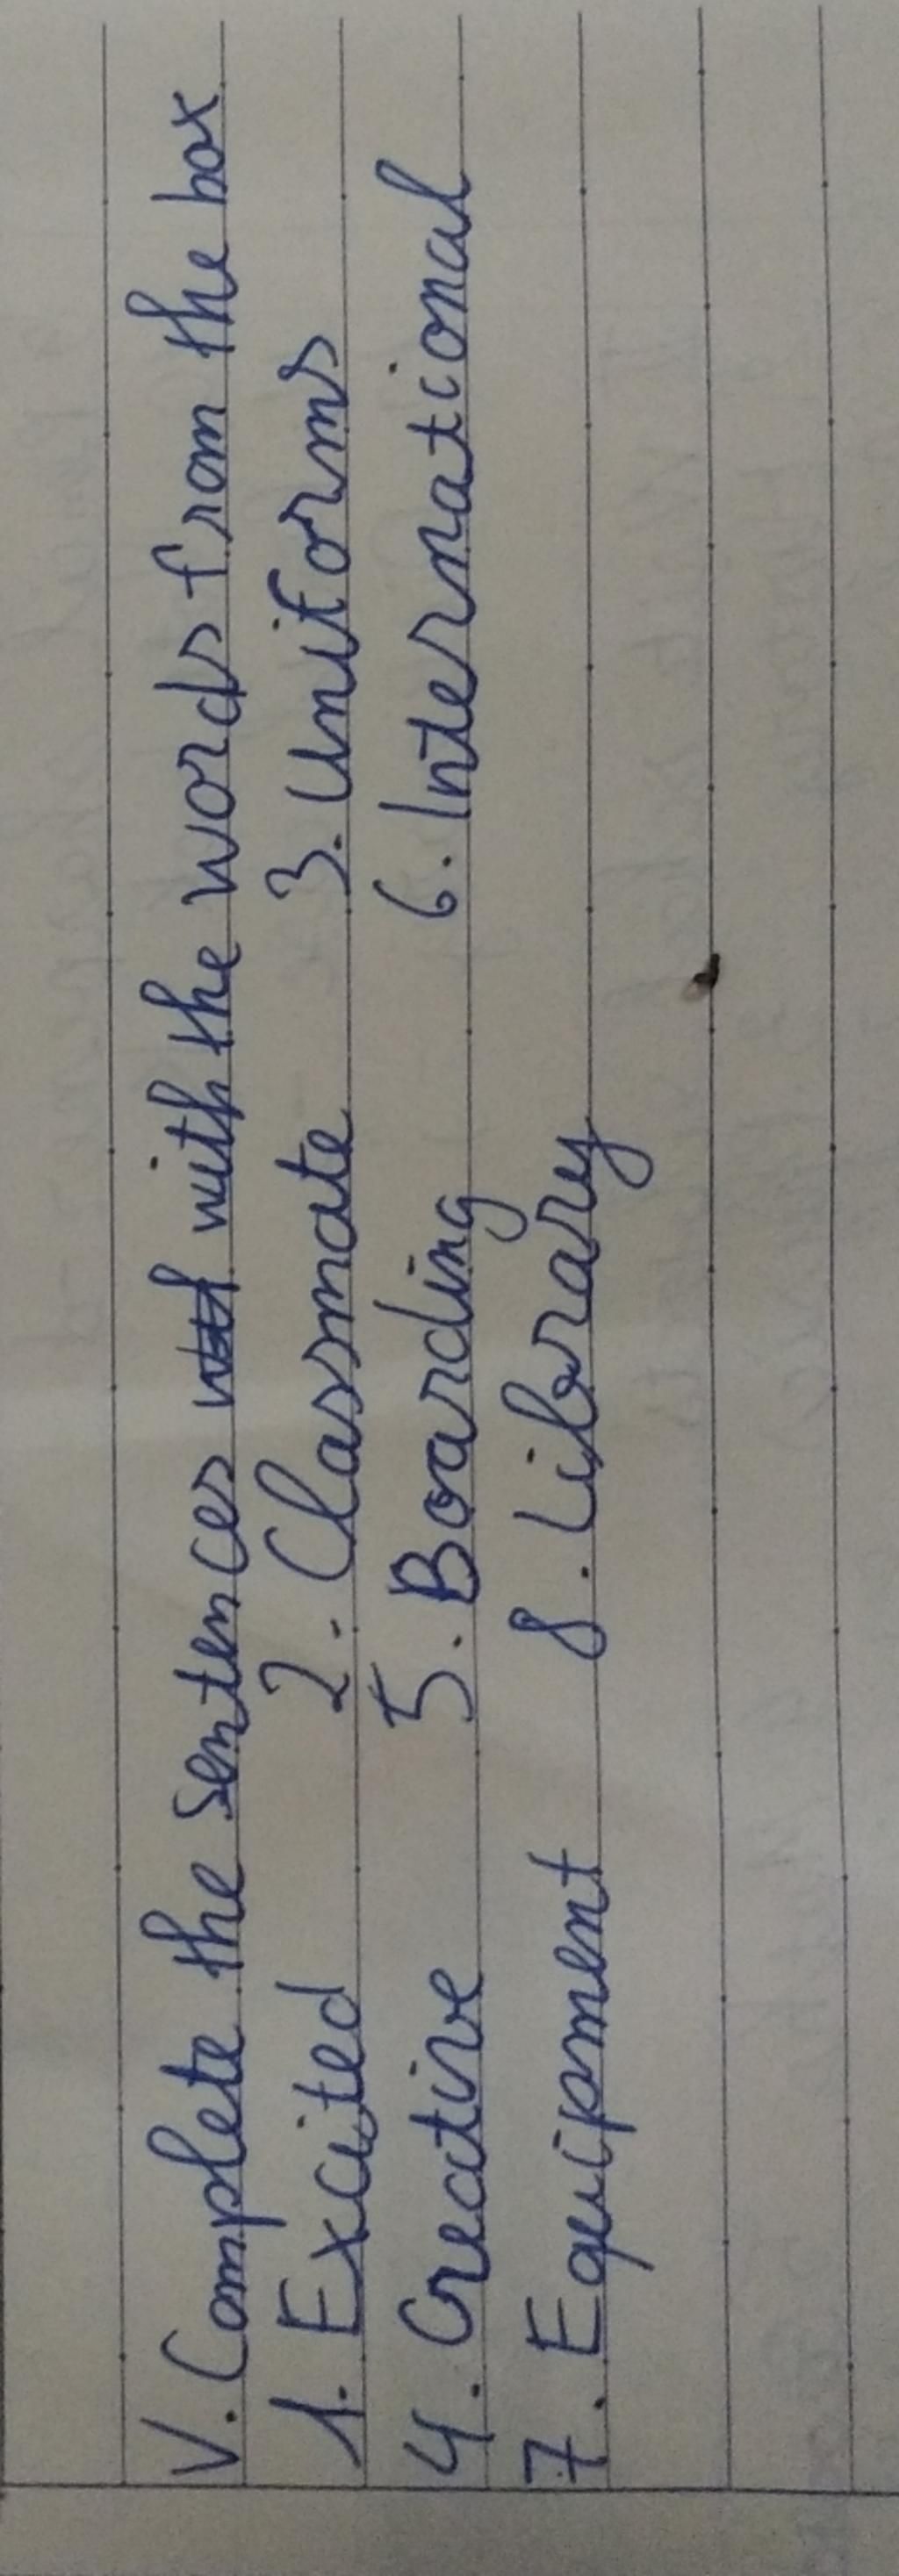 V. Complete the sentences with the words from the box
1. Excited 2. Classmate 3. Uniforms
4. Creative 5. Boarding 6. International
7. Equipment 8. Library